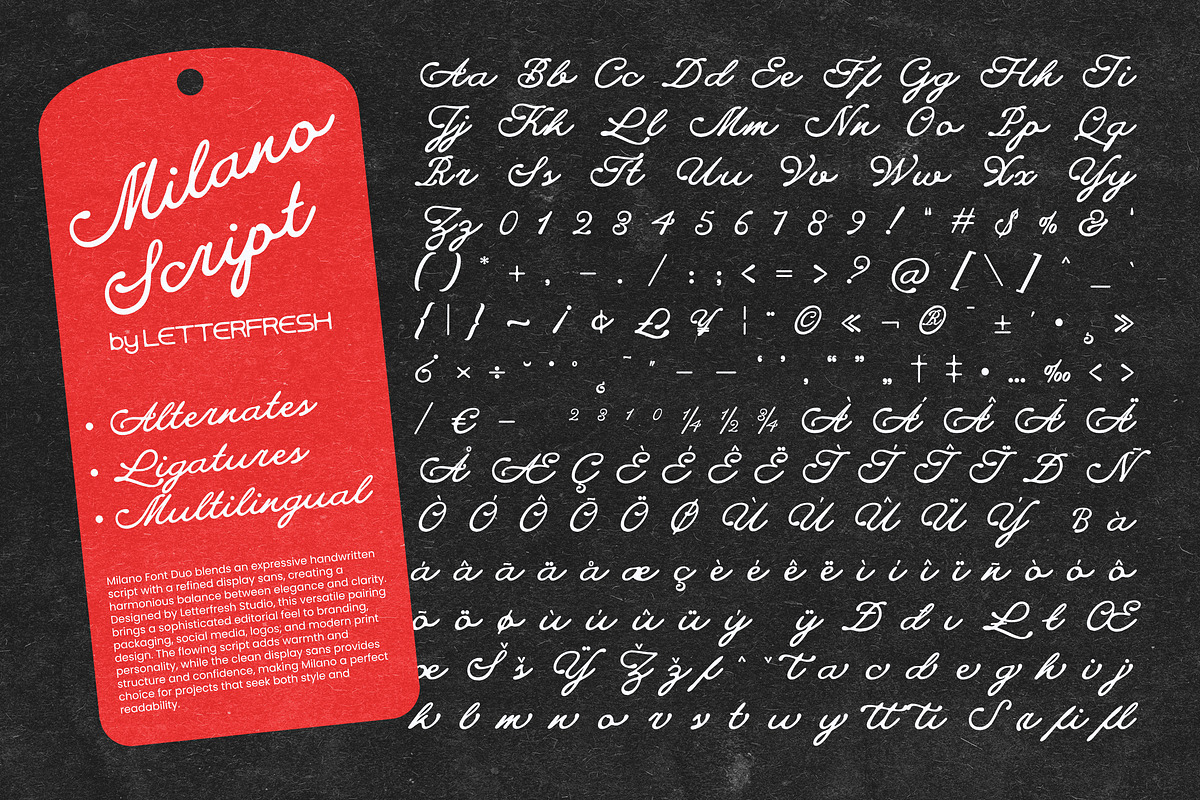 Milano
Script
by LETTERFRESH
• Alternates
• Ligatures
• Multilingual
Milano Font Duo blends an expressive handwritten
script with a refined display sans, creating a
harmonious balance between elegance and clarity.
Designed by Letterfresh Studio, this versatile pairing
brings a sophisticated editorial feel to branding,
packaging, social media, logos, and modern print
design. The flowing script adds warmth and
personality, while the clean display sans provides
structure and confidence, making Milano a perfect
choice for projects that seek both style and
readability.
Aa Bb Cc Dd Ee Ff Gg Hh Ii
Jj Kk Ll Mm Nn Oo Pp Qq
Rr Ss Tt Uu Vv Ww Xx Yy
Zz 0 1 2 3 4 5 6 7 8 9 ! " # $ % & '
( ) * + , - . / : ; < = > ? @ [ \ ] ^ _ `
{ | } ~ ¡ ¢ £ ¥ ¦ ¨ © « ¬ ® ¯ ± ´ • ¸ »
¿ × ÷ ˘ ˙ ° ¸ ˜ ″ – — ‘ ’ ‚ “ ” „ † ‡ • … ‰ < >
/ € − 2 3 1 0 ¼ ½ ¾ À Á Â Ã Ä
Å Æ Ç È É Ê Ë Ì Í Î Ï Ð Ñ
Ò Ó Ô Õ Ö Ø Ù Ú Û Ü Ý B à
á â ã ä å æ ç è é ê ë ì í î ï ñ ò ó ô
õ ö ø ù ú û ü ý ÿ Đ đ ı Ł ł Œ
œ Š š Ÿ Ž ž ƒ ˆ ˇ T a c d e g h i j
k l m n o r s t u y tt ti S a fi fl